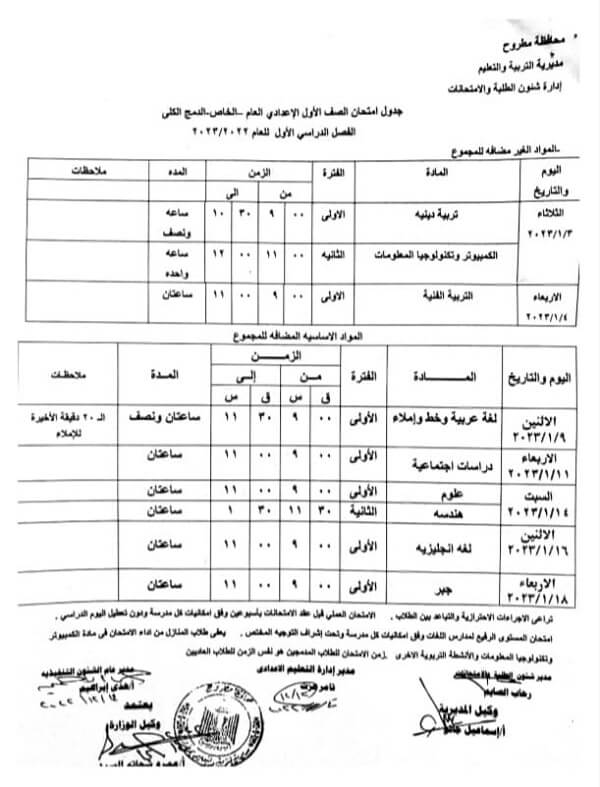 محافظة مطروح
مديرية التربية والتعليم
إدارة شئون الطلبة والامتحانات
جدول امتحان الصف الأول الإعدادي العام –الخاص-الدمج الكلى
الفصل الدراسي الأول للعام ٢٠٢٣/٢٠٢٢
-المواد الغير مضافه للمجموع
اليوم والتاريخ المادة الفترة الزمن المده ملاحظات
من الى
الثلاثاء ٢٠٢٣/١/٣ تربية دينيه الاولى ٠٠ ٩ ٣٠ ١٠ ساعه ونصف
الكمبيوتر وتكنولوجيا المعلومات الثانيه ٠٠ ١١ ٠٠ ١٢ ساعه واحده
الاربعاء ٢٠٢٣/١/٤ التربية الفنية الاولى ٠٠ ٩ ٠٠ ١١ ساعتان
المواد الاساسيه المضافه للمجموع
اليوم والتاريخ المـــــادة الفترة الزمــــن المـدة ملاحظات
مـــن إلـــى
ق س ق س
الاثنين ٢٠٢٣/١/٩ لغة عربية وخط وإملاء الأولى ٠٠ ٩ ٣٠ ١١ ساعتان ونصف الـ ٢٠ دقيقة الأخيرة للإملاء
الاربعاء ٢٠٢٣/١/١١ دراسات اجتماعية الأولى ٠٠ ٩ ٠٠ ١١ ساعتان
السبت ٢٠٢٣/١/١٤ علوم الأولى ٠٠ ٩ ٠٠ ١١ ساعتان
هندسه الثانية ٣٠ ١١ ٣٠ ١ ساعتان
الاثنين ٢٠٢٣/١/١٦ لغه انجليزيه الأولى ٠٠ ٩ ٠٠ ١١ ساعتان
الاربعاء ٢٠٢٣/١/١٨ جبر الأولى ٠٠ ٩ ٠٠ ١١ ساعتان
تراعى الاجراءات الاحترازية والتباعد بين الطلاب . الامتحان العملي قبل عقد الامتحانات بأسبوعين وفق امكانيات كل مدرسة ودون تعطيل اليوم الدراسي .
امتحان المستوى الرفيع لمدارس اللغات وفق امكانيات كل مدرسة وتحت إشراف التوجيه المختص . يعفى طلاب المنازل من اداء الامتحان فى مادة الكمبيوتر
وتكنولوجيا المعلومات والأنشطة التربوية الاخرى . زمن الامتحان للطلاب المدمجين هو نفس الزمن للطلاب العاديين
مدير شئون الطلبة والامتحانات مدير إدارة التعليم الاعدادى مدير عام الشئون التنفيذيه
رحاب الصايم تامر أ/هدى إبراهيم
وكيل المديرية يعتمد
أ/إسماعيل وكيل الوزارة